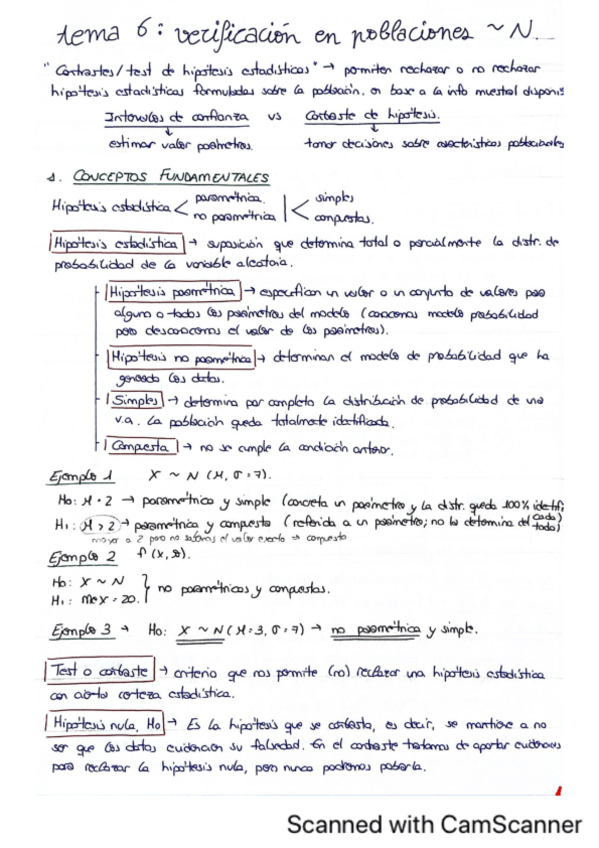 tema 6: verificación en poblaciones ~ N.
"Contrastes/test de hipótesis estadísticos" → permiten rechazar o no rechazar
hipótesis estadísticas formuladas sobre la población, en base a la info muestral dispon
Intervalos de confianza vs Contraste de hipótesis.
estimar valor parámetros. tomar decisiones sobre características poblacionales
1. CONCEPTOS FUNDAMENTALES
Hipótesis estadística < paramétrica. no paramétrica | < simples compuestas.
Hipótesis estadística → suposición que determina total o parcialmente la distr. de
probabilidad de la variable aleatoria.
Hipótesis paramétrica → especifican un valor o un conjunto de valores para
alguno o todos los parámetros del modelo (conocemos modelo probabilidad
pero desconocemos el valor de los parámetros).
Hipótesis no paramétrica → determinan el modelo de probabilidad que ha
generado los datos.
Simples → determina por completo la distribución de probabilidad de una
v.a. La población queda totalmente identificada.
Compuesta → no se cumple la condición anterior.
Ejemplo 1 X ~ N (μ, σ=7).
H₀: μ = 2 → paramétrica y simple (concreta un parámetro y la distr. queda 100% identif
H₁: μ > 2 → paramétrica y compuesta (referida a un parámetro; no la determina del todo)
mayor a 2 pero no sabemos el valor exacto → compuesta
Ejemplo 2 f(x, θ).
H₀: X ~ N
H₁: Mex = 20. } no paramétricas y compuestas.
Ejemplo 3 → H₀: X ~ N (μ=3, σ=7) → no paramétrica y simple.
Test o contraste → criterio que nos permite (no) rechazar una hipótesis estadística
con cierta certeza estadística.
Hipótesis nula, H₀ → Es la hipótesis que se contrasta, es decir, se mantiene a no
ser que los datos evidencien su falsedad. En el contraste tratamos de aportar evidencias
para rechazar la hipótesis nula, pero nunca podremos probarla.
1
Scanned with CamScanner